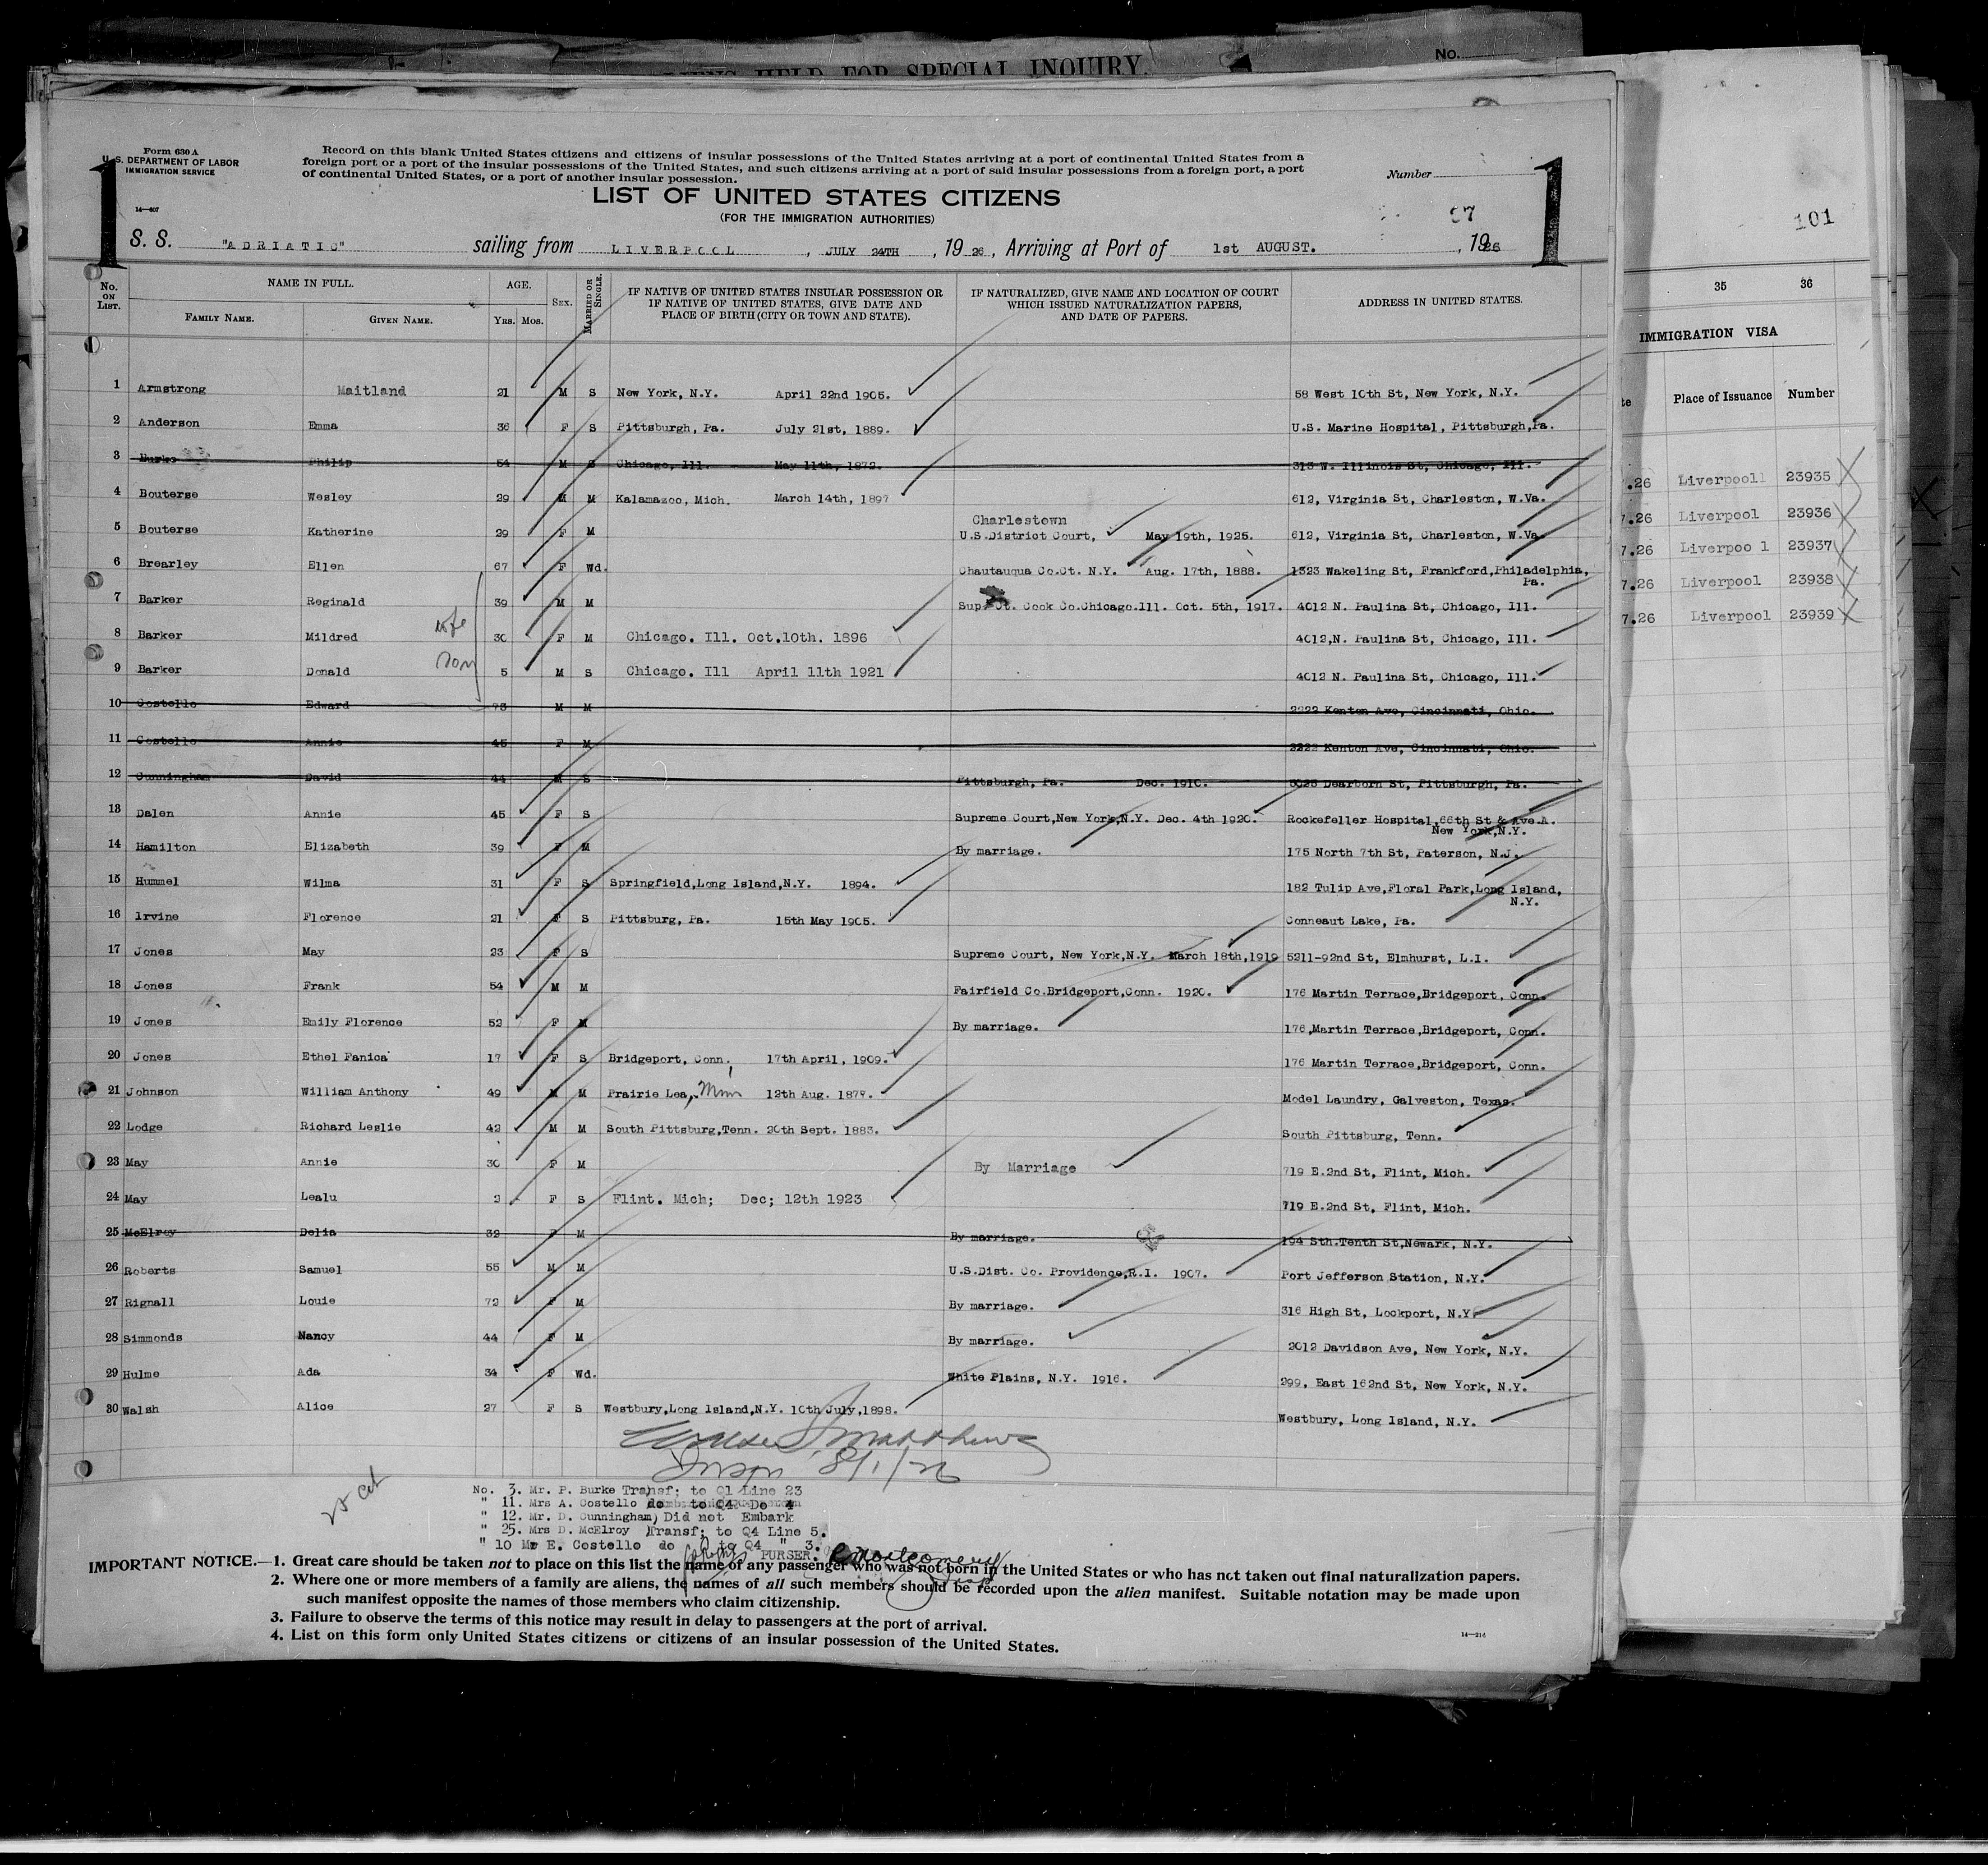 ALIENS HELD FOR SPECIAL INQUIRY.
No.
Form 630 A
U. S. DEPARTMENT OF LABOR
IMMIGRATION SERVICE
14—607
1
Record on this blank United States citizens and citizens of insular possessions of the United States arriving at a port of continental United States from a
foreign port or a port of the insular possessions of the United States, and such citizens arriving at a port of said insular possessions from a foreign port, a port
of continental United States, or a port of another insular possession.
Number
1
LIST OF UNITED STATES CITIZENS
(FOR THE IMMIGRATION AUTHORITIES)
S. S. "ADRIATIC" sailing from LIVERPOOL, JULY 24TH, 1926, Arriving at Port of 1st AUGUST., 1926
No. ON LIST.
NAME IN FULL.
FAMILY NAME. GIVEN NAME.
AGE.
YRS. MOS.
SEX.
MARRIED OR SINGLE.
IF NATIVE OF UNITED STATES INSULAR POSSESSION OR
IF NATIVE OF UNITED STATES, GIVE DATE AND
PLACE OF BIRTH (CITY OR TOWN AND STATE).
IF NATURALIZED, GIVE NAME AND LOCATION OF COURT
WHICH ISSUED NATURALIZATION PAPERS,
AND DATE OF PAPERS.
ADDRESS IN UNITED STATES.
1 Armstrong Maitland 21 M S New York, N.Y. April 22nd 1905. 58 West 10th St, New York, N.Y.
2 Anderson Emma 36 F S Pittsburgh, Pa. July 21st, 1889. U.S. Marine Hospital, Pittsburgh,Pa.
3 Burke Philip 54 M S Chicago, Ill. May 11th, 1872. 313 W. Illinois St, Chicago, Ill.
4 Bouterse Wesley 29 M M Kalamazoo, Mich. March 14th, 1897 612, Virginia St, Charleston, W.Va.
Charlestown
5 Bouterse Katherine 29 F M U.S.District Court, May 19th, 1925. 612, Virginia St, Charleston, W.Va.
6 Brearley Ellen 67 F Wd. Chautauqua Co.Ct. N.Y. Aug. 17th, 1888. 1323 Wakeling St, Frankford,Philadelphia,
Pa.
7 Barker Reginald 39 M M Sup. Ct. Cook Co.Chicago.Ill. Oct. 5th, 1917. 4012 N. Paulina St, Chicago, Ill.
8 Barker Mildred wife 30 F M Chicago. Ill. Oct.10th. 1896 4012,N. Paulina St, Chicago, Ill.
9 Barker Donald son 5 M S Chicago. Ill April 11th 1921 4012 N. Paulina St, Chicago, Ill.
10 Costello Edward 73 M M 2222 Kenton Ave, Cincinnati, Ohio.
11 Costello Annie 45 F M 2222 Kenton Ave, Cincinnati, Ohio.
12 Cunningham David 44 M S Pittsburgh, Pa. Dec. 1910. Dearborn St, Pittsburgh, Pa.
13 Dalen Annie 45 F S Supreme Court,New York,N.Y. Dec. 4th 1920. Rockefeller Hospital,66th St & Ave.A.
New York,N.Y.
14 Hamilton Elizabeth 39 F M By marriage. 175 North 7th St, Paterson, N.J.
15 Hummel Wilma 31 F S Springfield,Long Island,N.Y. 1894. 182 Tulip Ave,Floral Park,Long Island,
N.Y.
16 Irvine Florence 21 F S Pittsburg, Pa. 15th May 1905. Conneaut Lake, Pa.
17 Jones May 23 F S Supreme Court, New York,N.Y. March 18th,1919 5211-92nd St, Elmhurst, L.I.
18 Jones Frank 54 M M Fairfield Co.Bridgeport,Conn. 1920. 176 Martin Terrace,Bridgeport, Conn.
19 Jones Emily Florence 52 F M By marriage. 176,Martin Terrace,Bridgeport, Conn.
20 Jones Ethel Fanica 17 F S Bridgeport, Conn, 17th April, 1909. 176 Martin Terrace,Bridgeport, Conn.
21 Johnson William Anthony 49 M M Prairie Lea, 12th Aug. 1877. Model Laundry, Galveston, Texas.
22 Lodge Richard Leslie 42 M M South Pittsburg,Tenn. 20th Sept. 1883. South Pittsburg, Tenn.
23 May Annie 30 F M By Marriage 719 E.2nd St, Flint, Mich.
24 May Lealu 2 F S Flint. Mich; Dec; 12th 1923 719 E.2nd St, Flint, Mich.
25 McElroy Delia 32 F M By marriage. 194 Sth.Tenth St,Newark, N.Y.
26 Roberts Samuel 55 M M U.S.Dist. Co. Providence,R.I. 1907. Port Jefferson Station, N.Y.
27 Rignall Louie 72 F M By marriage. 316 High St, Lockport, N.Y.
28 Simmonds Nancy 44 F M By marriage. 2012 Davidson Ave, New York, N.Y.
29 Hulme Ada 34 F Wd. White Plains, N.Y. 1916. 299, East 162nd St, New York, N.Y.
30 Walsh Alice 27 F S Westbury,Long Island,N.Y. 10th July,1898. Westbury, Long Island, N.Y.
Matthews
Insp 8/1/26
No. 3. Mr. P. Burke Transf; to Q1 Line 23
" 11. Mrs A. Costello do to Q4 Do 4
" 12. Mr. D. Cunningham) Did not Embark
" 25. Mrs D. McElroy Transf; to Q4 Line 5.
" 10 Mr E. Costello do to Q4 " 3.
PURSER. Montgomery
IMPORTANT NOTICE.—1. Great care should be taken not to place on this list the name of any passenger who was not born in the United States or who has not taken out final naturalization papers.
2. Where one or more members of a family are aliens, the names of all such members should be recorded upon the alien manifest. Suitable notation may be made upon
such manifest opposite the names of those members who claim citizenship.
3. Failure to observe the terms of this notice may result in delay to passengers at the port of arrival.
4. List on this form only United States citizens or citizens of an insular possession of the United States.
14—216
101
35 36
IMMIGRATION VISA
te Place of Issuance Number
7.26 Liverpool 23935
7.26 Liverpool 23936
7.26 Liverpoo l 23937
7.26 Liverpool 23938
7.26 Liverpool 23939